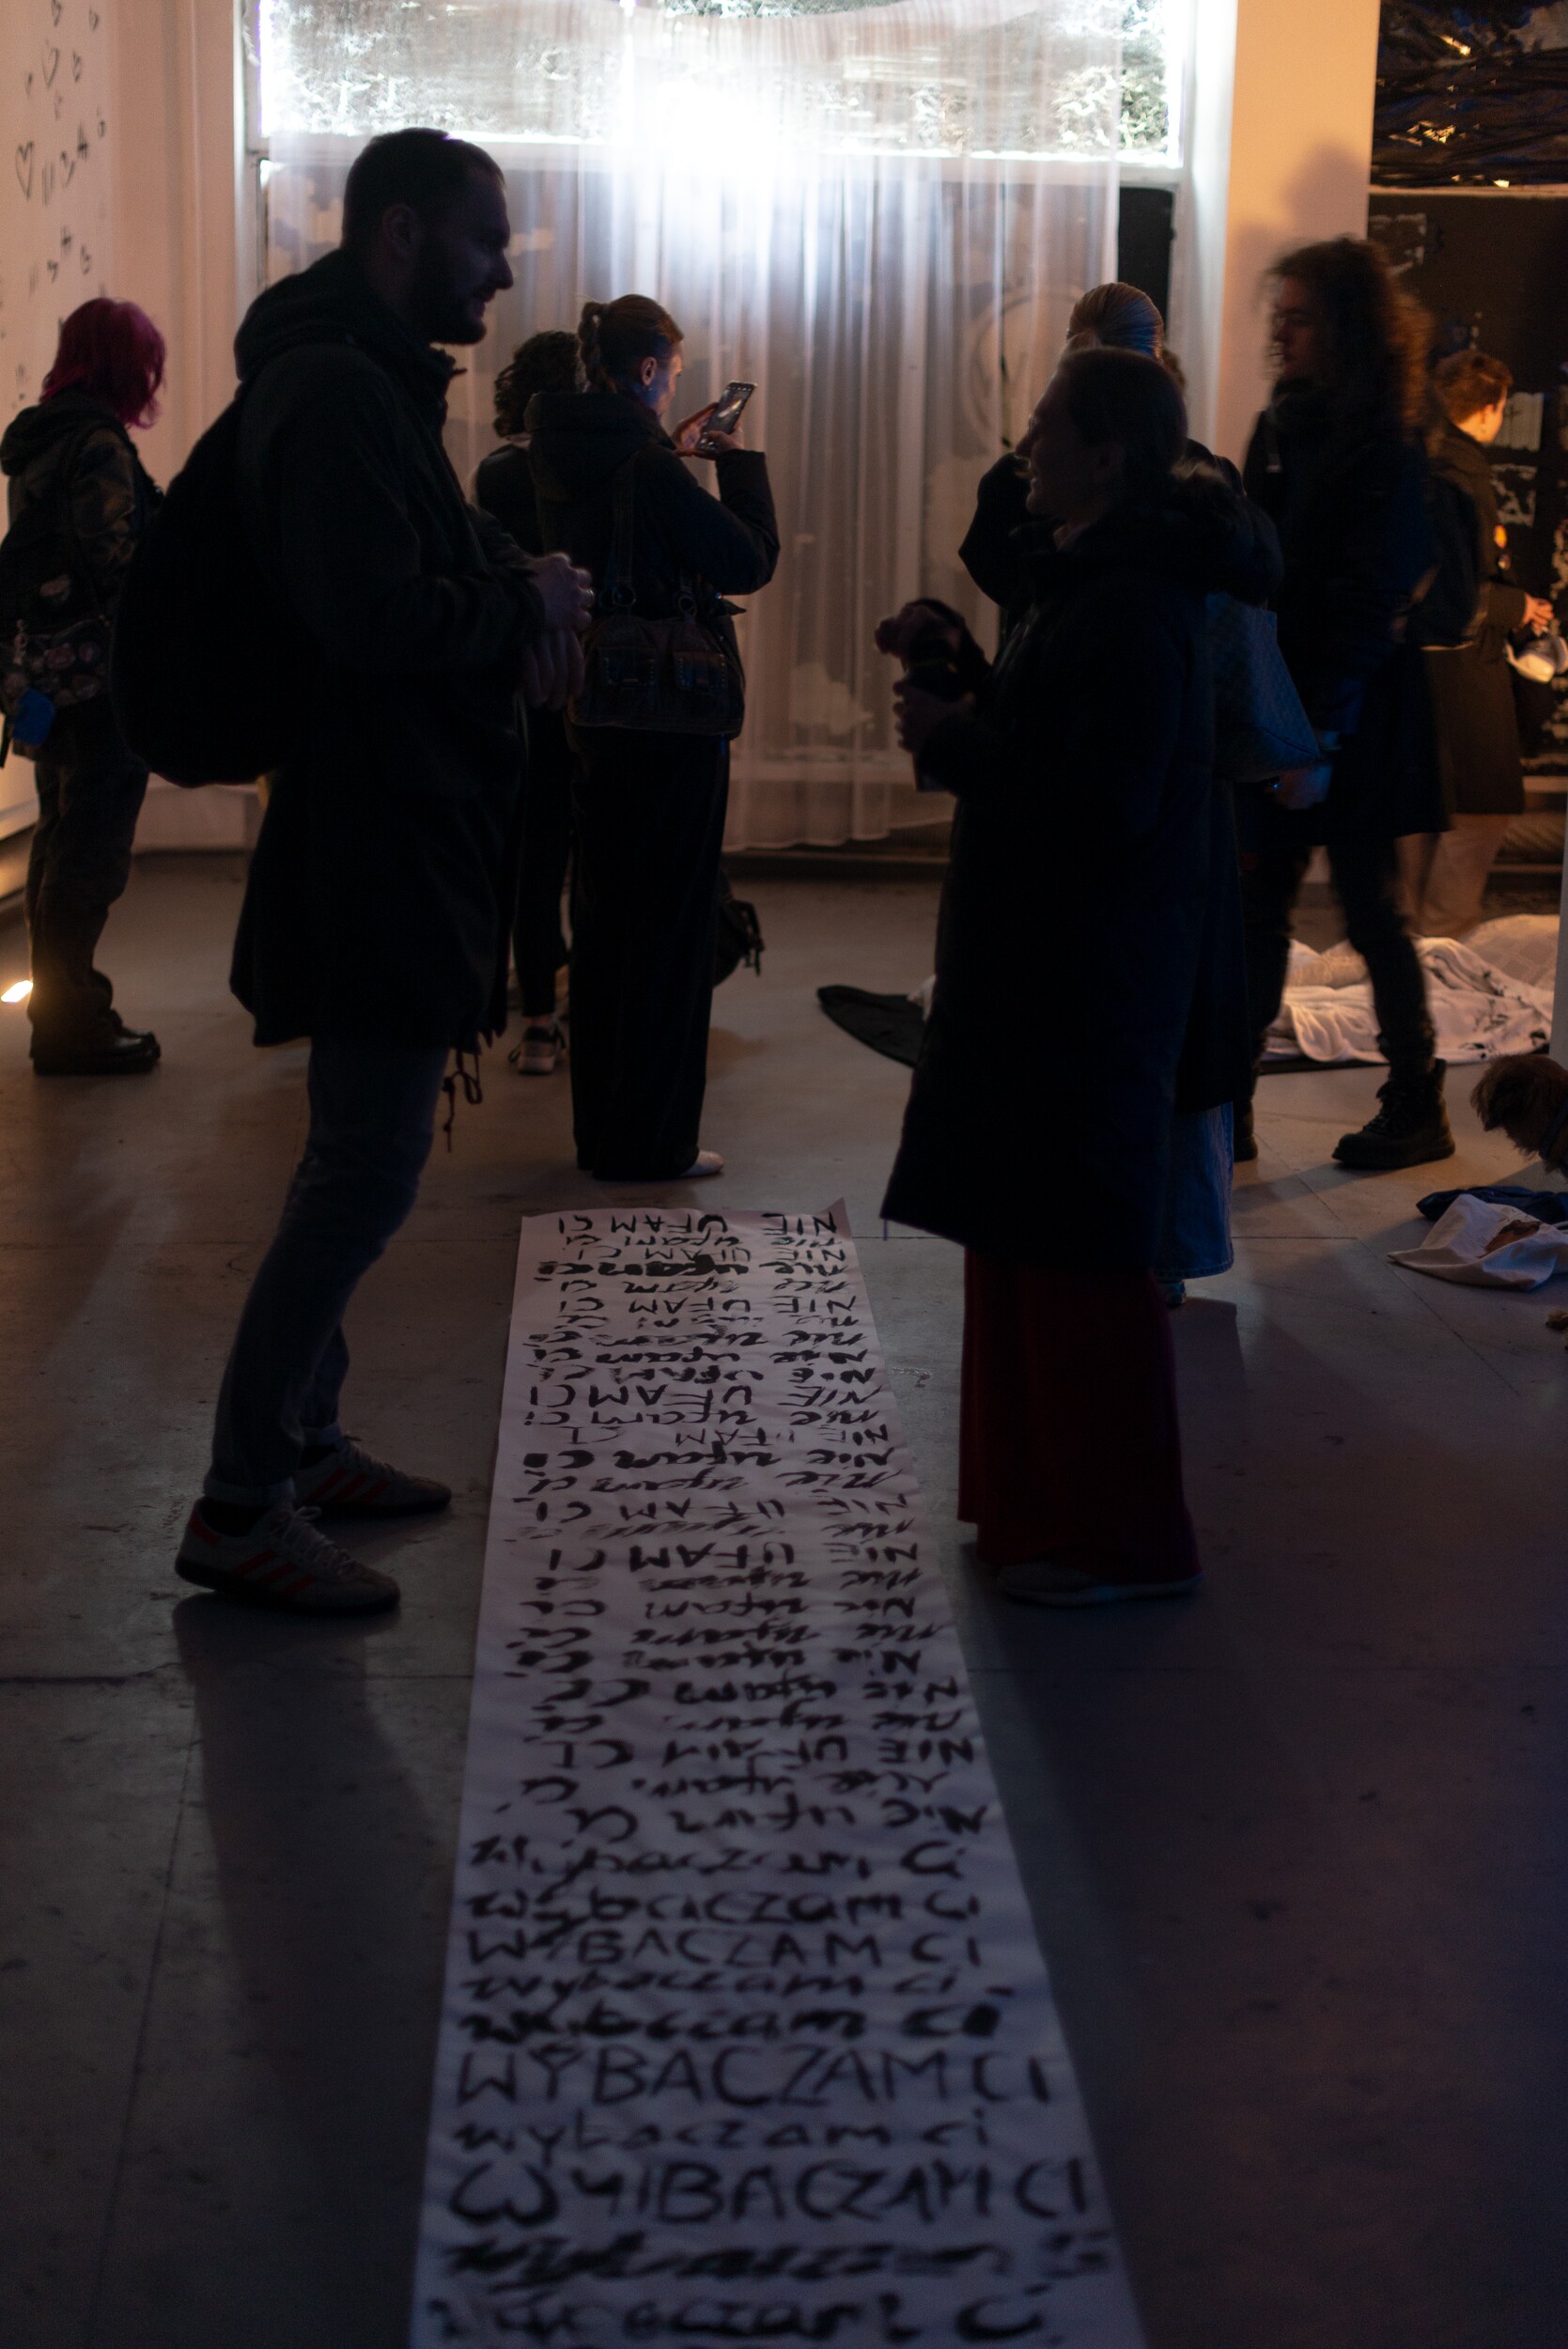 NIE UFAM CI
nie ufam ci
NIE UFAM CI
nie ufam ci
nie ufam ci
NIE UFAM CI
nie ufam ci
nie ufam ci
nie ufam ci
NIE UFAM CI
NIE UFAM CI
nie ufam ci
NIE UFAM CI
nie ufam ci
nie ufam ci
NIE UFAM CI
nie ufam ci
NIE UFAM CI
nie ufam ci
nie ufam ci
nie ufam ci
nie ufam ci
NIE ufam ci
nie ufam ci
NIE UFAM CI
nie ufam ci
Nie ufam ci
wybaczam ci
wybaczam ci
WYBACZAM CI
wybaczam ci
wybaczam ci
WYBACZAM CI
wybaczam ci
WYBACZAM CI
wybaczam ci
wybaczam ci